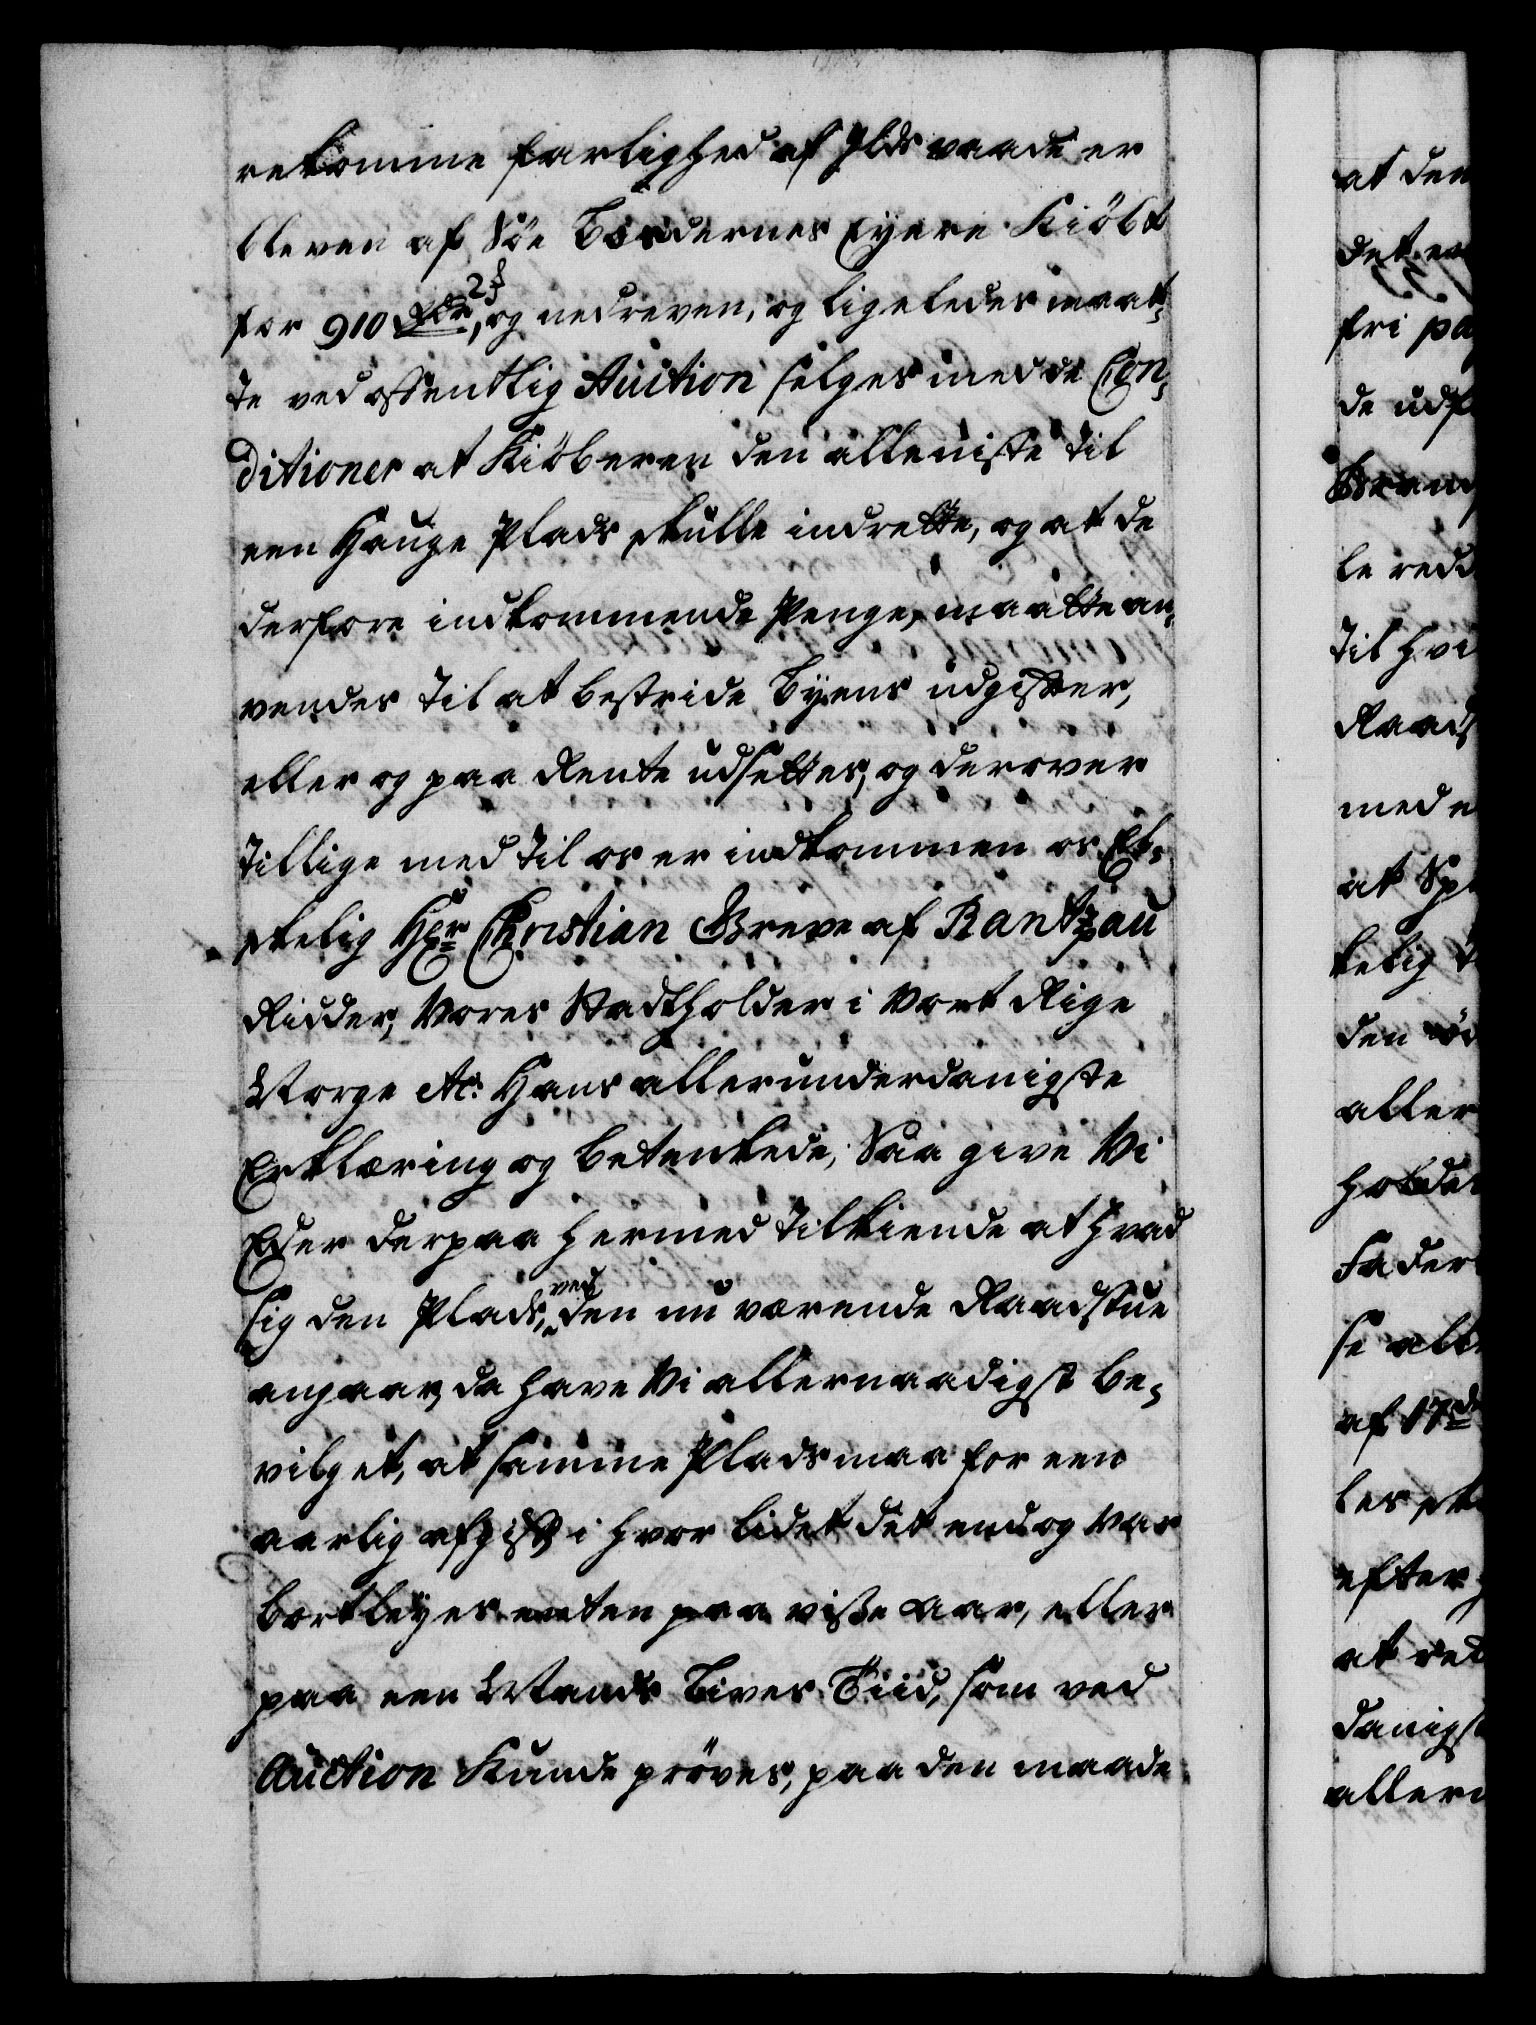 rekomme farlighed af Ilds vaade er
bleven af Søe Bordernes Eyere Kiøbt
for 910 Rdr 2 ß, og nedreven, og ligeledes maat-
te ved offentlig Auction selges med de Con-
ditioner at Kiøberen den alleniste til
een Hauge Plads skulle indrette, og at de
derfore indkommende Penge, maatte an-
vendes til at bestride Byens udgifter,
eller og paa Rente udsettes, og derover
tillige med til os er indkommen os El-
skelig Hr Christian Greve af Rantzau
Ridder, Vores Stadtholder i Vort Rige
Norge etc. Hans allerunderdanigste
Erklæring og betenkende, Saa give Vi
Eder derpaa hermed tilkiende at hvad
sig den Plads, ved den nu værende Raadstue
angaar, da have Vi allernaadigst be-
vilget, at samme Plads maa for een
aarlig afgift i hvor lidet det end og var
bortleyes enten paa visse Aar, eller
paa een Mands Lives Tiid, som ved
Auction Kunde prøves, paa den maade
at den
det er
fri pa
de udf
Brand
le red
til hvi
Raads
med e
at Sp
kelig
den
aller
holde
Fader
se all
af 17de
les
efter
at
danigs
aller